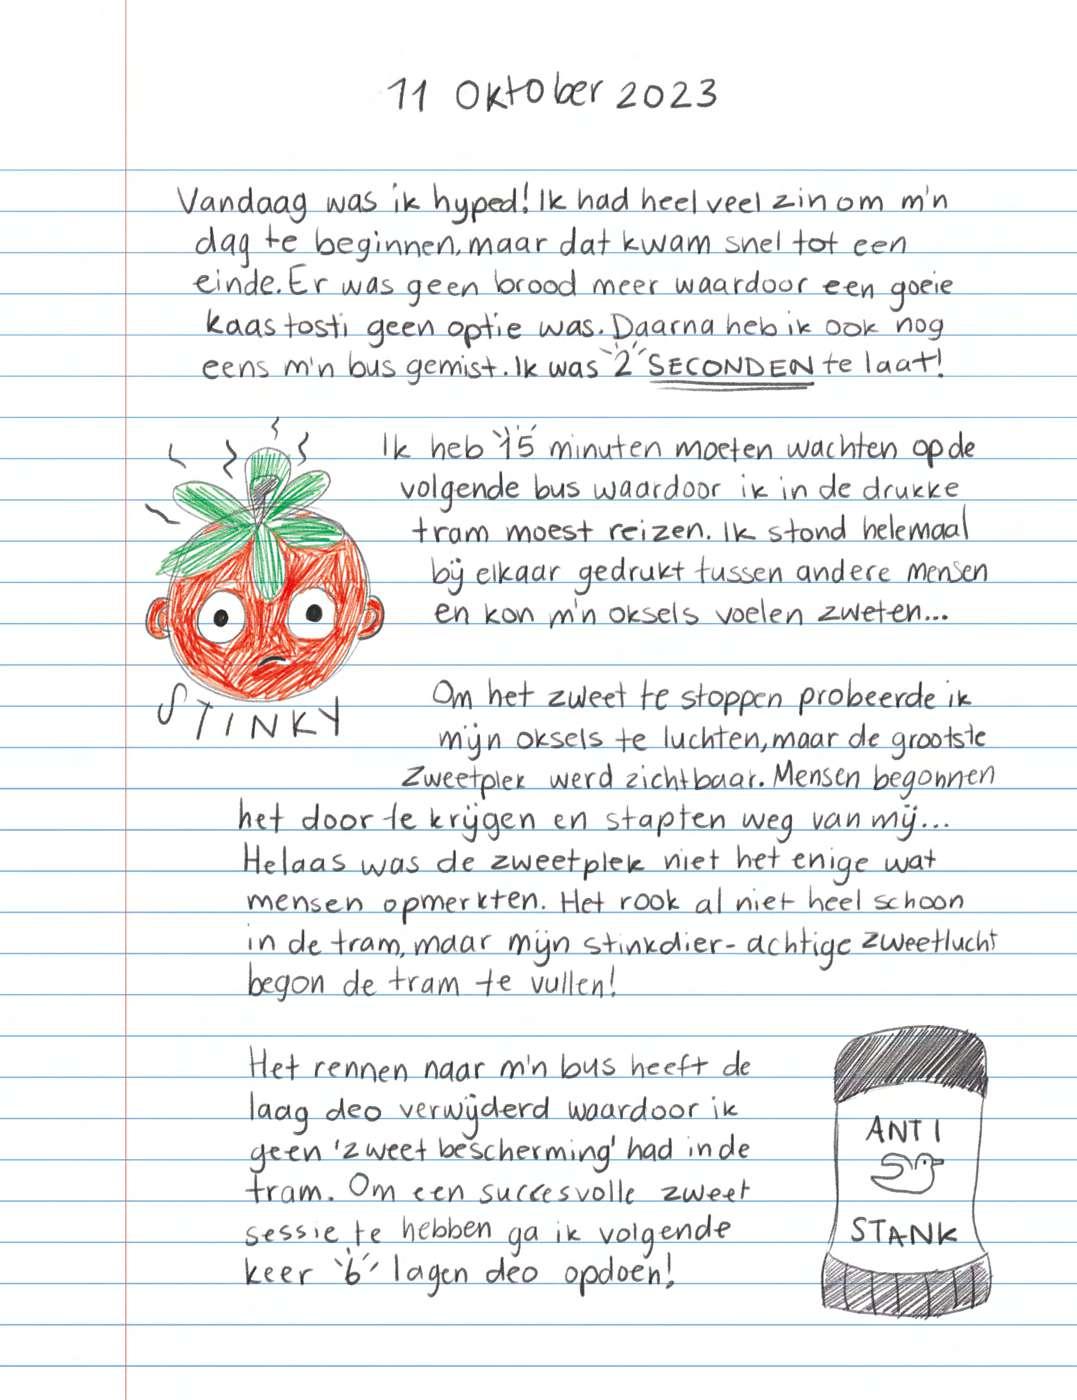 11 Oktober 2023
Vandaag was ik hyped! Ik had heel veel zin om m'n
dag te beginnen, maar dat kwam snel tot een
einde. Er was geen brood meer waardoor een goeie
kaas tosti geen optie was. Daarna heb ik ook nog
eens m'n bus gemist. Ik was 2 SECONDEN te laat!
Ik heb 15 minuten moeten wachten op de
volgende bus waardoor ik in de drukke
tram moest reizen. Ik stond helemaal
bij elkaar gedrukt tussen andere mensen
en kon m'n oksels voelen zweten...
STINKY
Om het zweet te stoppen probeerde ik
mijn oksels te luchten, maar de grootste
zweetplek werd zichtbaar. Mensen begonnen
het door te krijgen en stapten weg van mij...
Helaas was de zweetplek niet het enige wat
mensen opmerkten. Het rook al niet heel schoon
in de tram, maar mijn stinkdier-achtige zweetlucht
begon de tram te vullen!
Het rennen naar m'n bus heeft de
laag deo verwijderd waardoor ik
geen 'zweet bescherming' had in de
tram. Om een succesvolle zweet
sessie te hebben ga ik volgende
keer 6 lagen deo opdoen!
ANTI
STANK